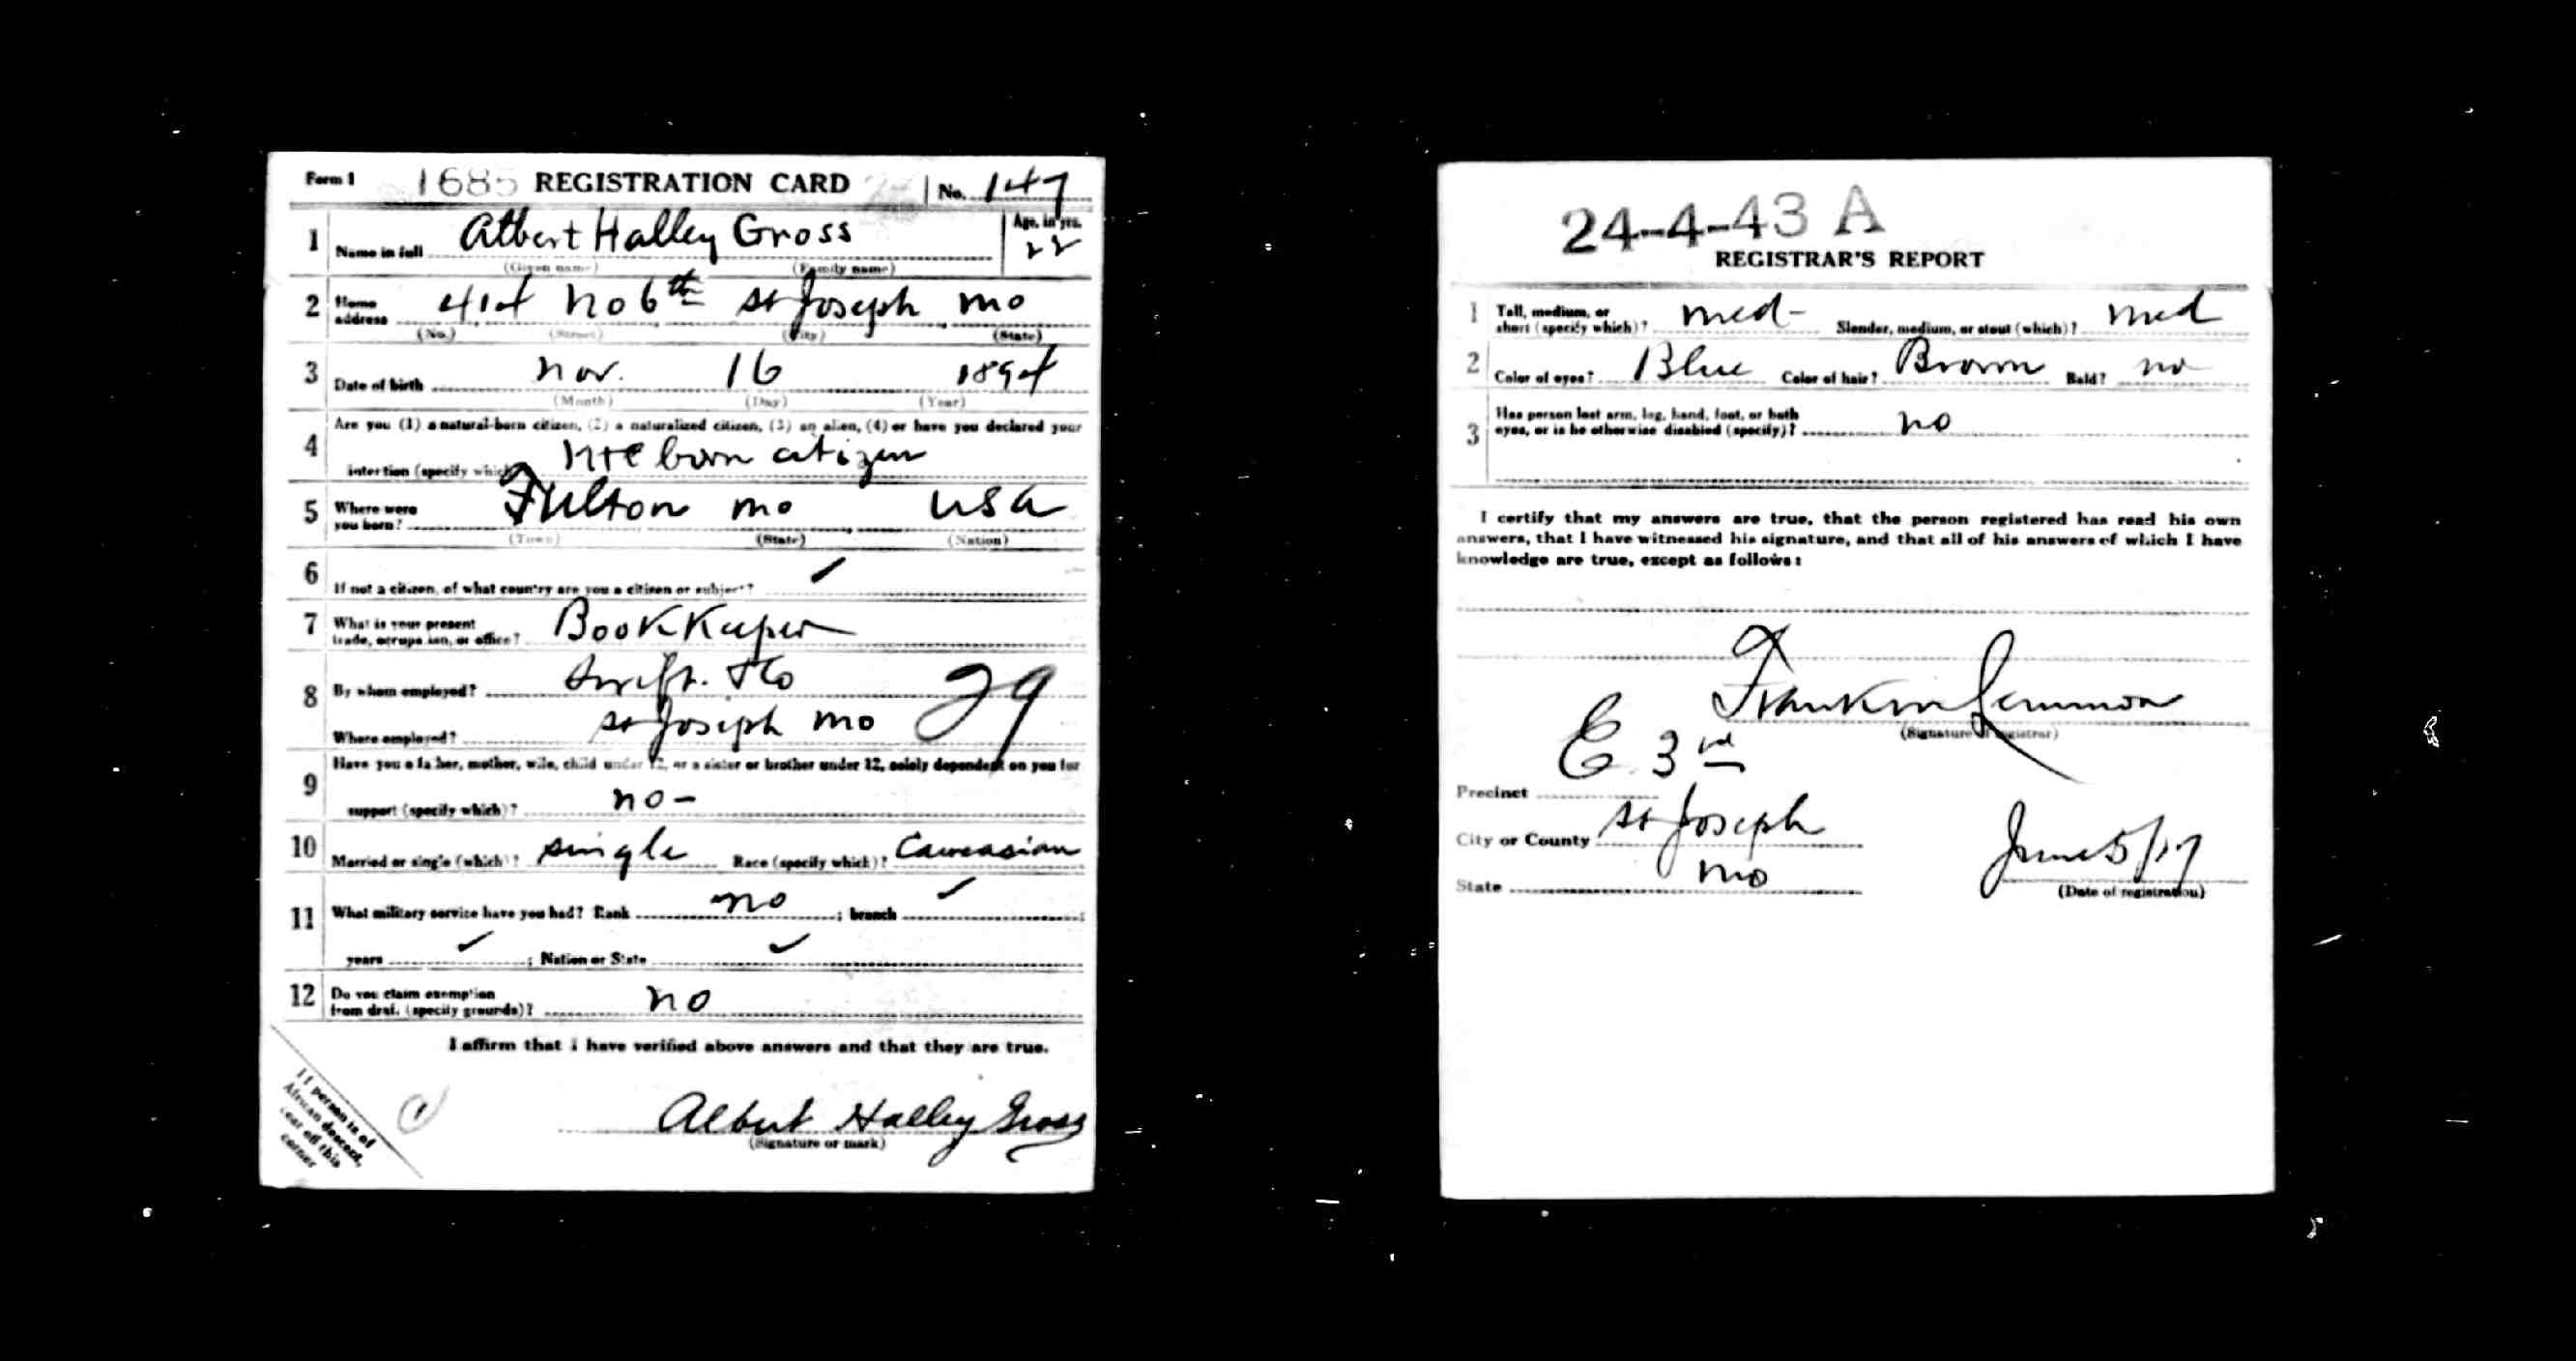 Form 1 1685 REGISTRATION CARD No. 147
1 Name in full Albert Halley Gross Age, in yrs. 22
(Given name) (Family name)
2 Home address 414 no 6th St Joseph mo
(No.) (Street) (City) (State)
3 Date of birth nov. 16 1894
(Month) (Day) (Year)
4 Are you (1) a natural-born citizen, (2) a naturalized citizen, (3) an alien, (4) or have you declared your
intention (specify which) born citizen
5 Where were you born? Fulton mo USA
(Town) (State) (Nation)
6 If not a citizen, of what country are you a citizen or subject?
7 What is your present trade, occupation, or office? Book Keeper
8 By whom employed? Swift & Co 29
Where employed? St Joseph mo
9 Have you a father, mother, wife, child under 12, or a sister or brother under 12, solely dependent on you for
support (specify which)? no -
10 Married or single (which)? single Race (specify which)? Caucasian
11 What military service have you had? Rank no ; branch ✓ ;
years ✓ ; Nation or State ✓
12 Do you claim exemption from draft (specify grounds)? no
I affirm that I have verified above answers and that they are true.
Albert Halley Gross
(Signature or mark)
If person is of
African descent,
tear off this
corner
24-4-43 A
REGISTRAR'S REPORT
1 Tall, medium, or short (specify which)? med- Slender, medium, or stout (which)? med
2 Color of eyes? Blue Color of hair? Brown Bald? no
3 Has person lost arm, leg, hand, foot, or both
eyes, or is he otherwise disabled (specify)? no
I certify that my answers are true, that the person registered has read his own
answers, that I have witnessed his signature, and that all of his answers of which I have
knowledge are true, except as follows:
(Signature of registrar)
Precinct E. 3rd
City or County St Joseph
State mo June 5/17
(Date of registration)